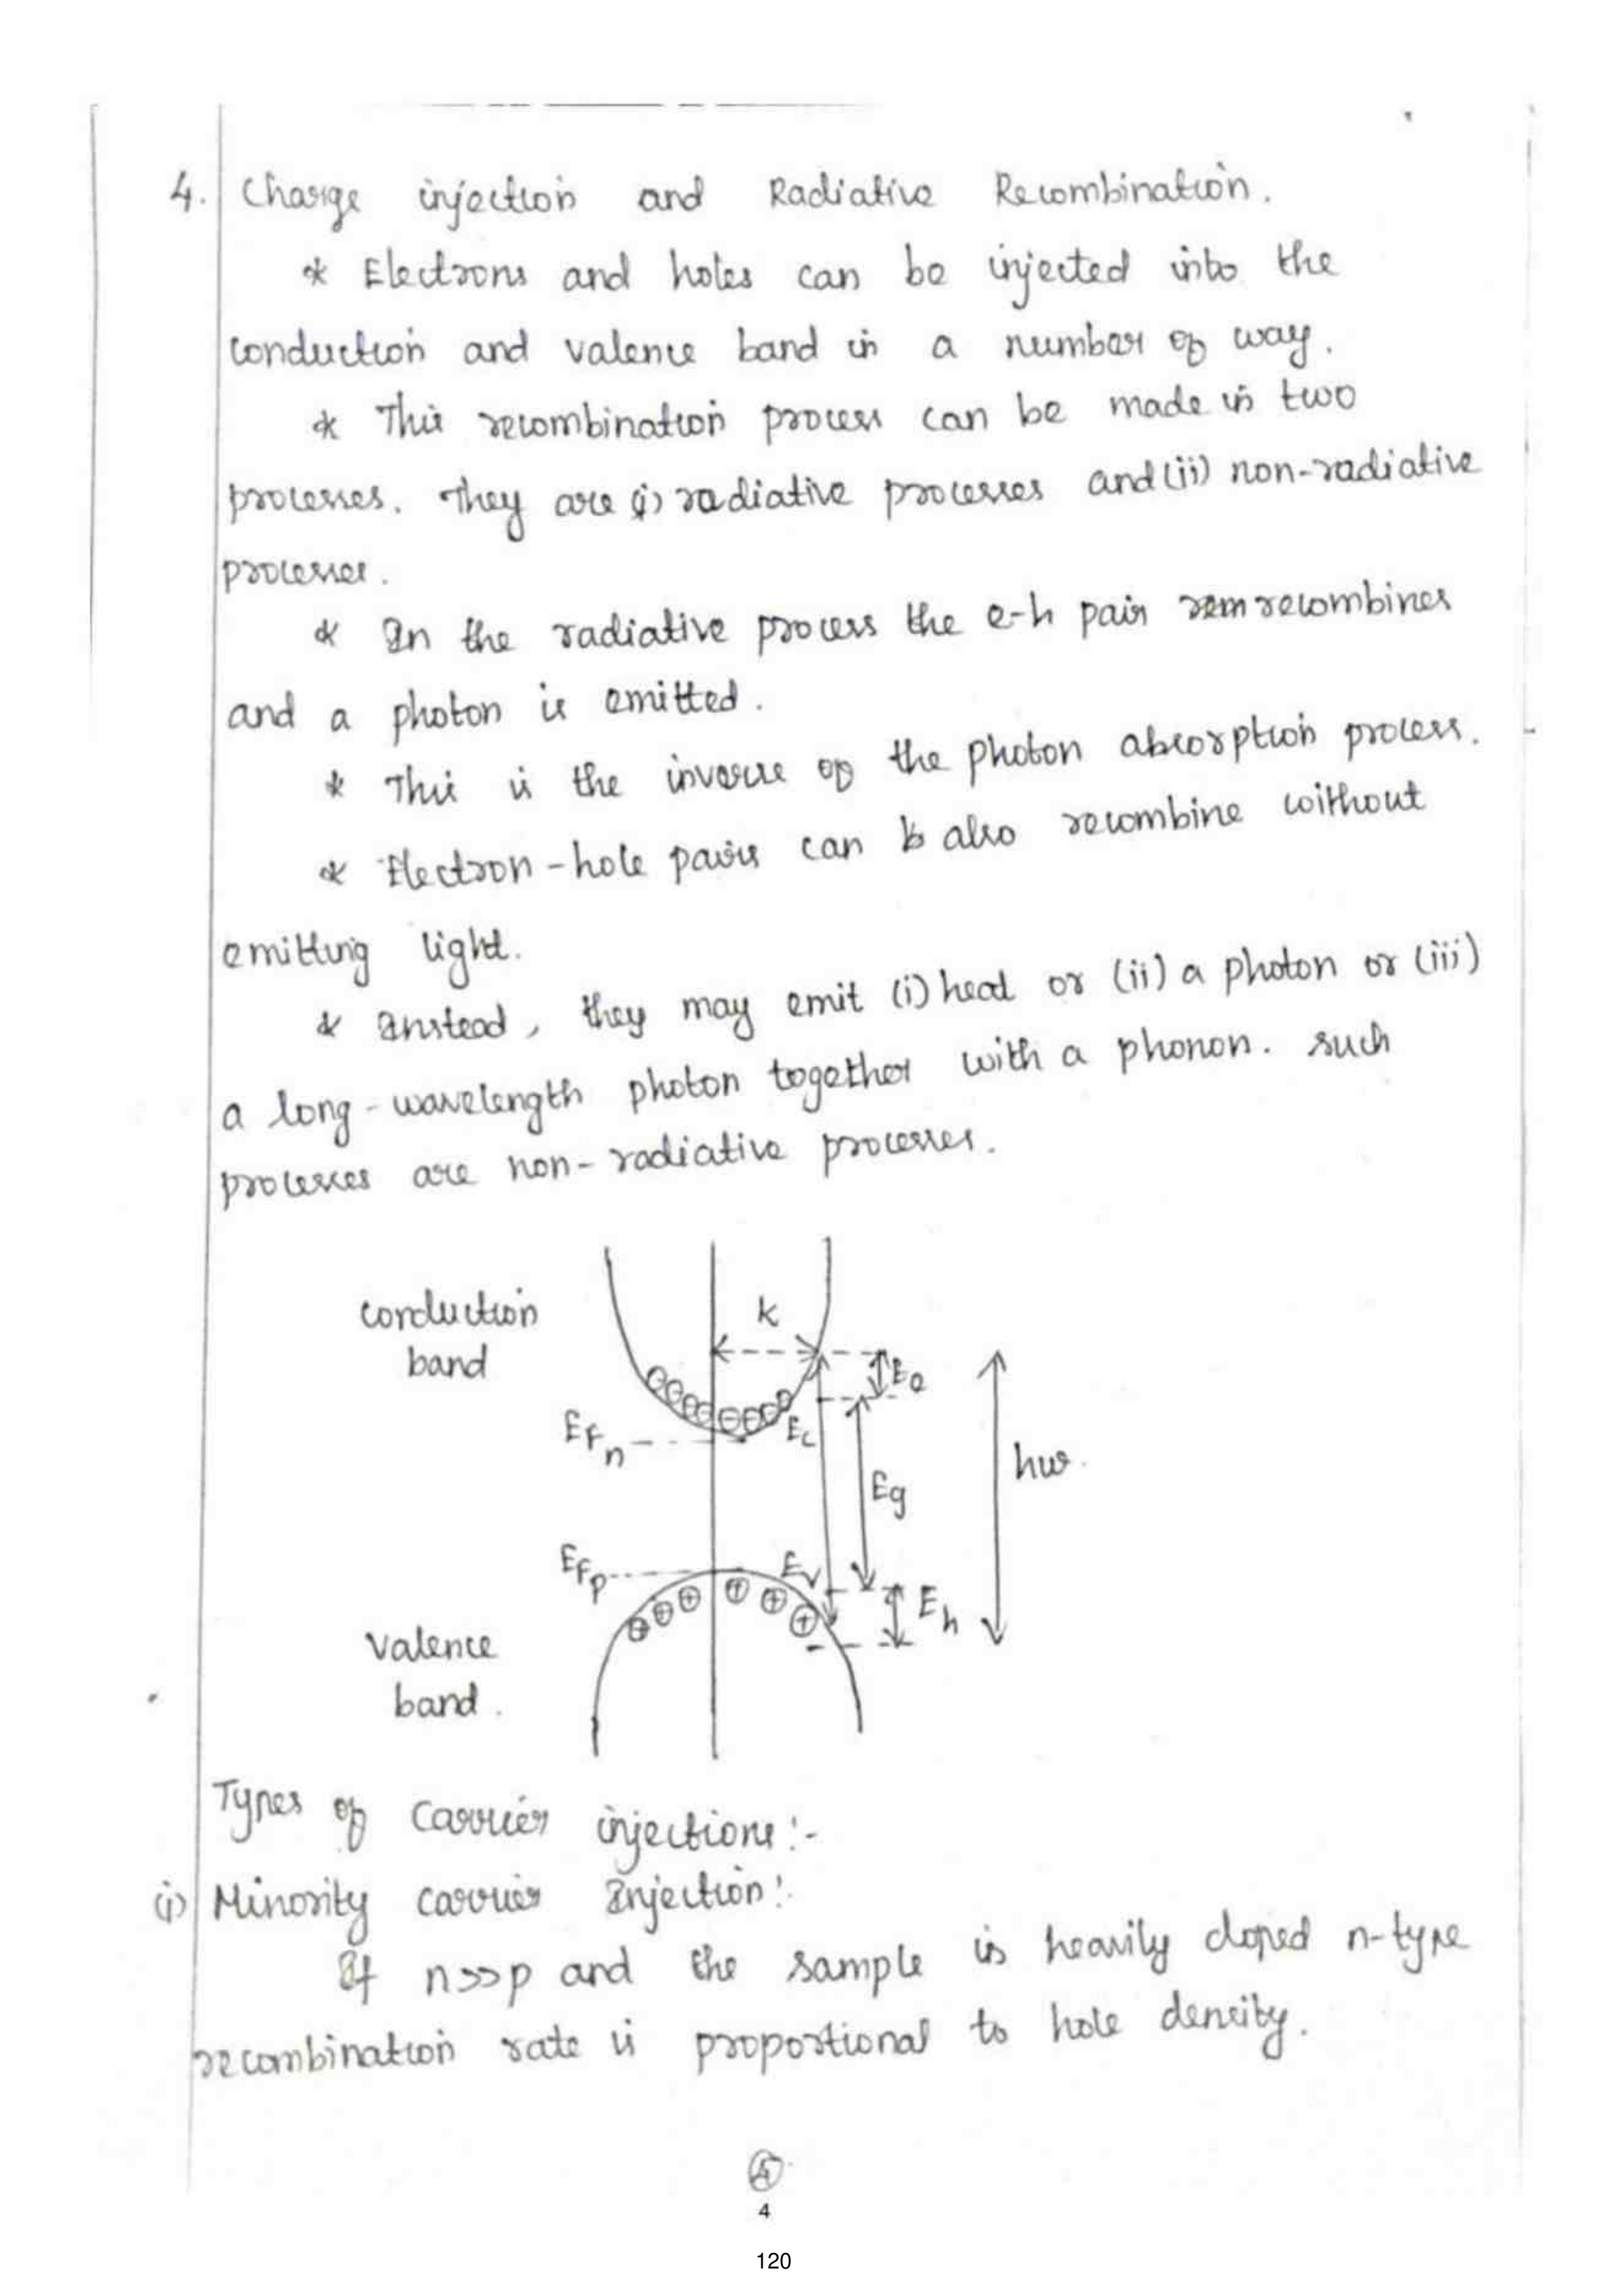 4. Charge injection and Radiative Recombination.
* Electrons and holes can be injected into the
conduction and valence band in a number of way.
* This recombination process can be made in two
processes. They are (i) radiative processes and (ii) non-radiative
processes.
* In the radiative process the e-h pair rem recombines
and a photon is emitted.
* This is the inverse of the photon absorption process.
* Electron-hole pairs can b also recombine without
emitting light.
* Instead, they may emit (i) heat or (ii) a photon or (iii)
a long-wavelength photon together with a phonon. such
processes are non-radiative processes.
conduction
band
k
Ee
EFn
Ec
hω.
Eg
EFp
Ev
Eh
Valence
band.
Types of carrier injections:-
(i) Minority carrier Injection:
If n>>p and the sample is heavily doped n-type
recombination rate is proportional to hole density.
5
4
120